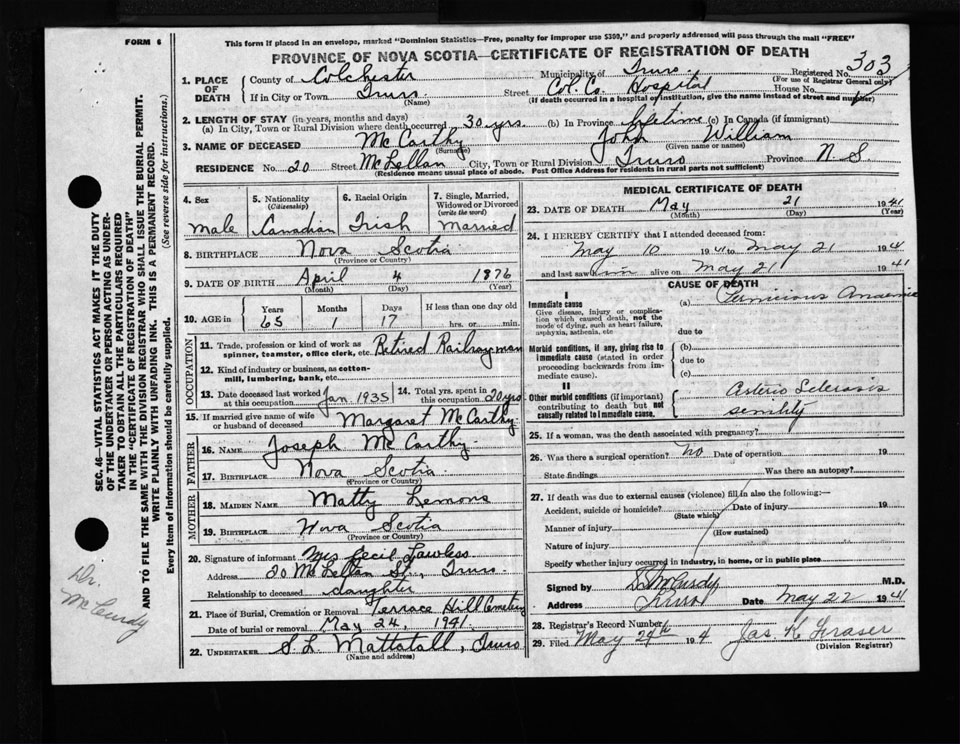 FORM 6
This form if placed in an envelope, marked "Dominion Statistics—Free, penalty for improper use $300," and properly addressed will pass through the mail "FREE"
PROVINCE OF NOVA SCOTIA—CERTIFICATE OF REGISTRATION OF DEATH
1. PLACE OF DEATH County of Colchester Municipality of Truro Registered No. 303
(For use of Registrar General only)
If in City or Town Truro (Name) Street Col. Co. Hospital House No.
(If death occurred in a hospital or institution, give the name instead of street and number)
2. LENGTH OF STAY (in years, months and days)
(a) In City, Town or Rural Division where death occurred 30 yrs. (b) In Province lifetime (c) In Canada (if immigrant)
3. NAME OF DECEASED McCarthy (Surname) John William (Given name or names)
RESIDENCE No. 20 Street McLellan City, Town or Rural Division Truro Province N.S.
(Residence means usual place of abode. Post Office Address for residents in rural parts not sufficient)
4. Sex Male
5. Nationality (Citizenship) Canadian
6. Racial Origin Irish
7. Single, Married, Widowed or Divorced (write the word) Married
8. BIRTHPLACE Nova Scotia
(Province or Country)
9. DATE OF BIRTH April 4 1876
(Month) (Day) (Year)
10. AGE in Years 65 Months 1 Days 17 If less than one day old hrs. or min.
OCCUPATION
11. Trade, profession or kind of work as spinner, teamster, office clerk, etc. Retired Railrayman
12. Kind of industry or business, as cotton-mill, lumbering, bank, etc.
13. Date deceased last worked at this occupation Jan. 1935
14. Total yrs. spent in this occupation 20 yrs
15. If married give name of wife or husband of deceased Margaret McCarthy
FATHER
16. NAME Joseph McCarthy
17. BIRTHPLACE Nova Scotia
(Province or Country)
MOTHER
18. MAIDEN NAME Matty Lemons
19. BIRTHPLACE Nova Scotia
(Province or Country)
20. Signature of informant Mrs Cecil Lawless
Address 20 McLellan St., Truro
Relationship to deceased daughter
21. Place of Burial, Cremation or Removal Terrace Hill Cemetery
Date of burial or removal May 24, 1941.
22. UNDERTAKER S. L. Mattatall, Truro
(Name and address)
MEDICAL CERTIFICATE OF DEATH
23. DATE OF DEATH May 21 1941
(Month) (Day) (Year)
24. I HEREBY CERTIFY that I attended deceased from:
May 10 1941 to May 21 1941
and last saw him alive on May 21 1941
CAUSE OF DEATH
I
Immediate cause (a) Pernicious Anaemia
Give disease, injury or complication which caused death, not the mode of dying, such as heart failure, asphyxia, asthenia, etc
due to
Morbid conditions, if any, giving rise to immediate cause (stated in order proceeding backwards from immediate cause).
(b)
due to
(c)
II
Other morbid conditions (if important) contributing to death but not causally related to immediate cause.
Arterio Sclerosis
senility
25. If a woman, was the death associated with pregnancy?
26. Was there a surgical operation? no Date of operation 19
State findings Was there an autopsy?
27. If death was due to external causes (violence) fill in also the following:—
Accident, suicide or homicide? Date of injury 19
(State which)
Manner of injury
(How sustained)
Nature of injury
Specify whether injury occurred in industry, in home, or in public place
Signed by McCurdy M.D.
Address Truro Date May 22 1941
28. Registrar's Record Number
29. Filed May 24th 194 Jas. K. Fraser
(Division Registrar)
SEC. 46—VITAL STATISTICS ACT MAKES IT THE DUTY
OF THE UNDERTAKER OR PERSON ACTING AS UNDER-
TAKER TO OBTAIN ALL THE PARTICULARS REQUIRED
IN THE "CERTIFICATE OF REGISTRATION OF DEATH"
AND TO FILE THE SAME WITH THE DIVISION REGISTRAR WHO SHALL ISSUE THE BURIAL PERMIT.
WRITE PLAINLY WITH UNFADING INK. THIS IS A PERMANENT RECORD.
Every item of information should be carefully supplied. (See reverse side for instructions.)
Dr.
McCurdy